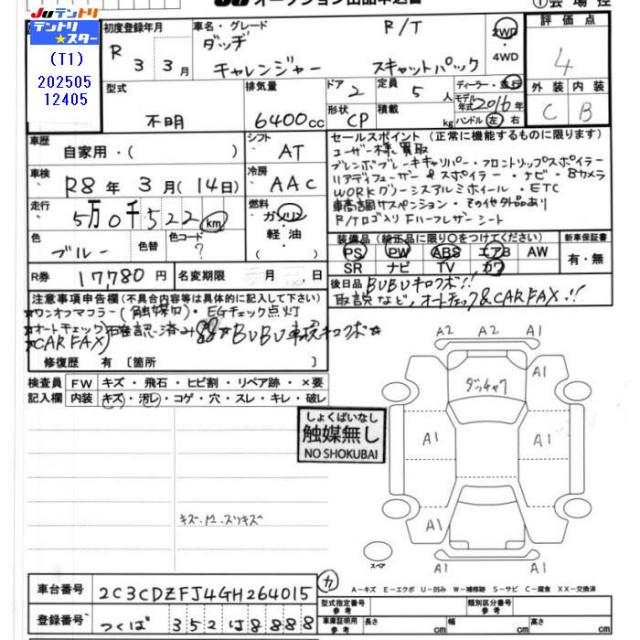 JUテントリ
テントリ★スター
(T1)
202505
12405
オークション出品申込書
初度登録年月
車名・グレード
R/T
2WD
4WD
評価点
4
R 3 3月
ダッヂ
チャレンジャー スキャットパック
型式
排気量
ドア
2
定員
5人
ディーラー・並行
モデル年式 2016年
ハンドル 左 右
外装
内装
C
B
不明
6400cc
形状
CP
積載
kg
車歴
自家用・( )
シフト
AT
セールスポイント(正常に機能するものに限ります)
ユーザー様買取
ブレンボブレーキキャリパー・フロントリップスポイラー
リアディフューザー&スポイラー・ナビ・Bカメラ
WORKグリーンスデルミホイール・ETC
車高調サスペンション・その他社外品あり
R/Tロゴ入りFハーフレザーシート
車検
R8年3月(14日)
冷房
AAC
走行
5万0千522km
燃料
ガソリン
・軽油
・( )
色
ブルー
色替
色コード
?
装備品(装備品に限り○をつけてください)
新車保証書
PS PW ABS エアB AW
SR ナビ TV カワ
有・無
R券
17,780円
名変期限
月 日
後日品 BUBUキロクボ!!
取説など、オートチェック&CARFAX!!
注意事項申告欄(不具合内容等は具体的に記入して下さい)
☆ワンオフマフラー(触媒ナシ)・EGチェック点灯
☆オートチェック確認済み ☆BUBU車検キロクボ☆
☆CARFAX
修復歴 有〔箇所 〕
検査員
記入欄
FW
キズ・飛石・ヒビ割・リペア跡・×要
内装
キズ・汚レ・コゲ・穴・スレ・キレ・破レ
しょくばいなし
触媒無し
NO SHOKUBAI
キズ・凹・スリキズ
A1 A2 A2 A1
ダッチャク
A1
A1 A1 A1
A1 A1
スペア
A−キズ E−エクボ U−凹み W−補修跡 S−サビ C−腐食 XX−交換済
車台番号
2C3CDZFJ4GH264015
カ
型式指定番号
参考
類別区分番号
参考
登録番号
つくば 352は8888
車庫証明用
参考
長さ
cm
幅
cm
高さ
cm